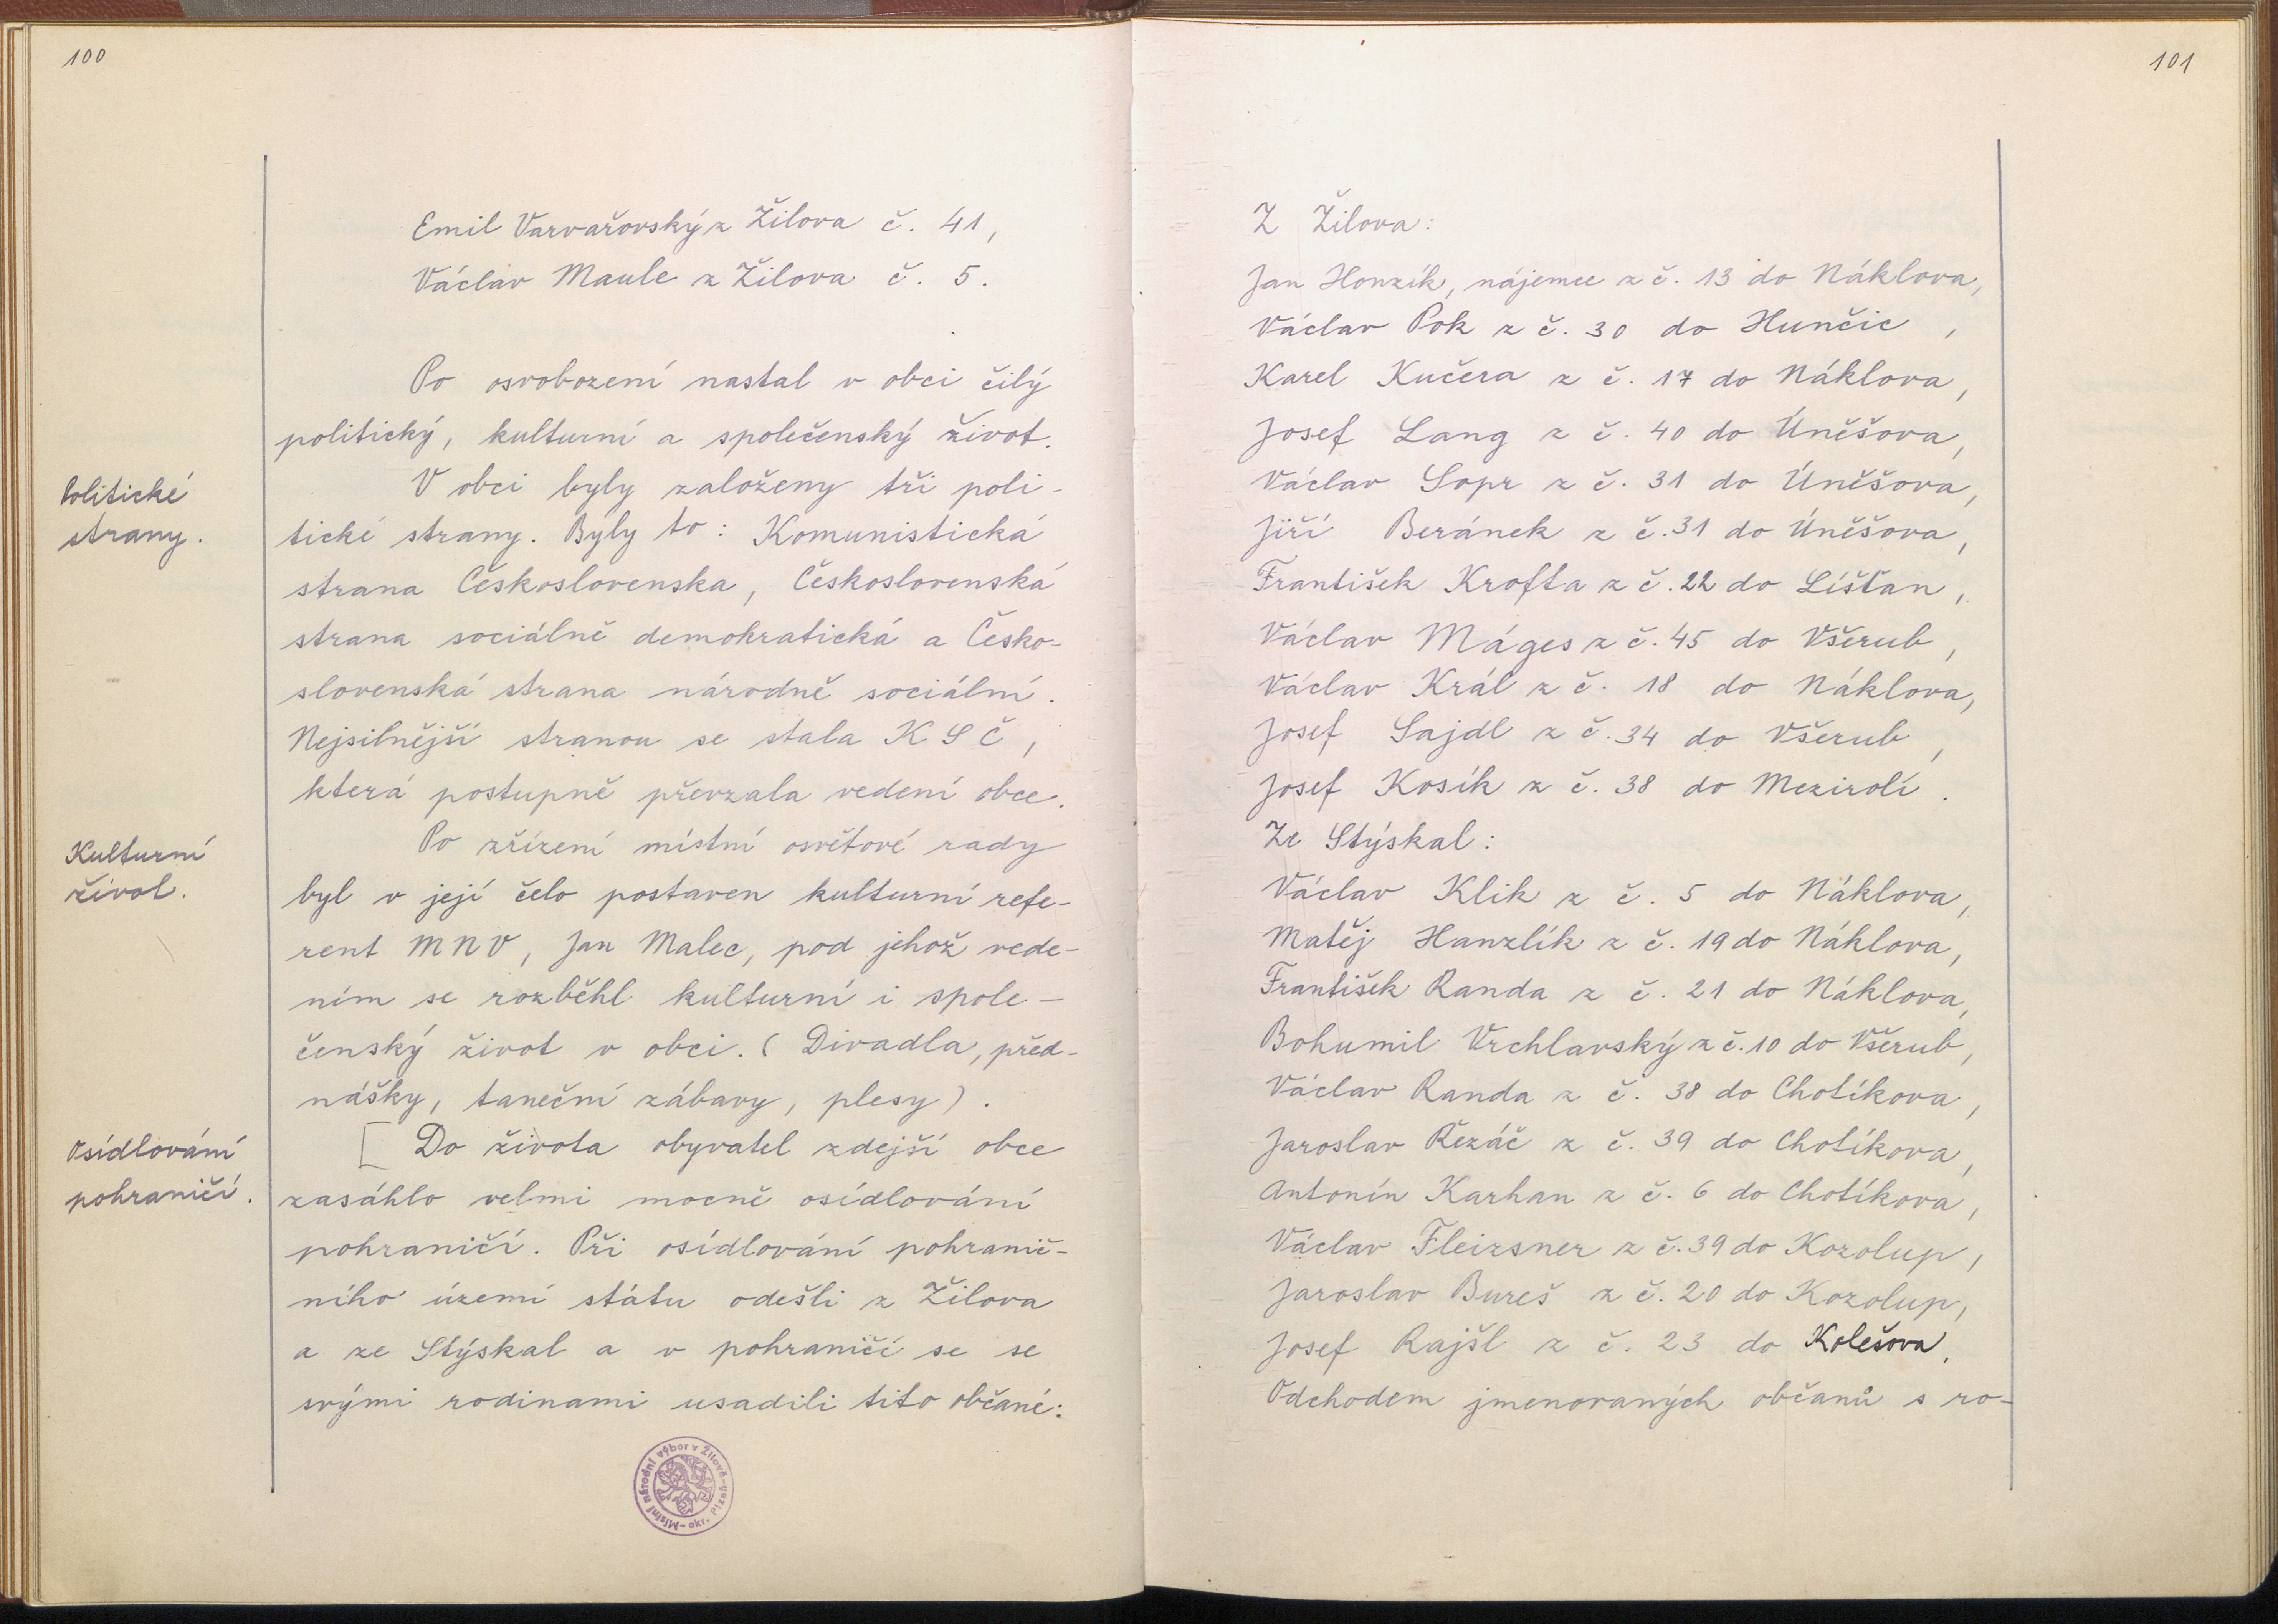 100
Emil Varvařovský z Žilova č. 41,
Václav Maule z Žilova č. 5.
Po osvobození nastal v obci čilý
politický, kulturní a společenský život.
Politické
strany.
V obci byly založeny tři poli-
tické strany. Byly to: Komunistická
strana Československa, Československá
strana sociálně demokratická a Česko-
slovenská strana národně sociální.
Nejsilnější stranou se stala KSČ,
která postupně převzala vedení obce.
Kulturní
život.
Po zřízení místní osvětové rady
byl v její čelo postaven kulturní refe-
rent MNV, Jan Malec, pod jehož vede-
ním se rozběhl kulturní i spole-
čenský život v obci. (Divadla, před-
nášky, taneční zábavy, plesy).
Osídlování
pohraničí.
[ Do života obyvatel zdejší obce
zasáhlo velmi mocně osídlování
pohraničí. Při osídlování pohranič-
ního území státu odešli z Žilova
a ze Stýskal a v pohraničí se se
svými rodinami usadili tito občané:
Místní národní výbor v Žilově - okr. Plzeň -
101
Z Žilova:
Jan Honzík, nájemce z č. 13 do Náklova,
Václav Pok z č. 30 do Hunčic,
Karel Kučera z č. 17 do Náklova,
Josef Lang z č. 40 do Úněšova,
Václav Sopr z č. 31 do Úněšova,
Jiří Beránek z č. 31 do Úněšova,
František Krofta z č. 22 do Líšťan,
Václav Máges z č. 45 do Všerub,
Václav Král z č. 18 do Náklova,
Josef Sajdl z č. 34 do Všerub,
Josef Kosík z č. 38 do Mezirolí.
Ze Stýskal:
Václav Klik z č. 5 do Náklova,
Matěj Hanzlík z č. 19 do Náklova,
František Randa z č. 21 do Náklova,
Bohumil Vrchlavský z č. 10 do Všerub,
Václav Randa z č. 38 do Chotíkova,
Jaroslav Řezáč z č. 39 do Chotíkova,
Antonín Karhan z č. 6 do Chotíkova,
Václav Fleizsner z č. 39 do Kozolup,
Jaroslav Bureš z č. 20 do Kozolup,
Josef Rajšl z č. 23 do Kolešova.
Odchodem jmenovaných občanů s ro-